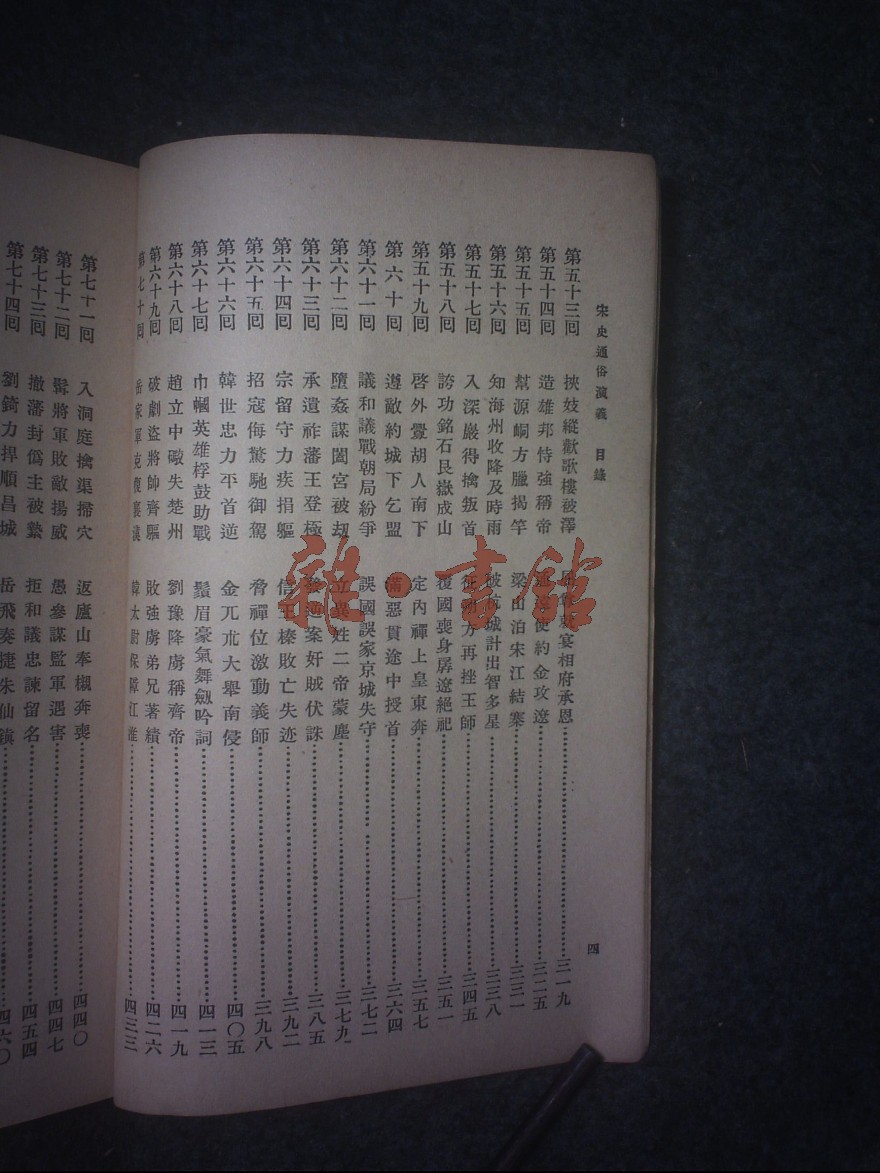 宋史通俗演義 目錄
四
第五十三回 挾妓縱歡歌樓被澤 屈尊就宴相府承恩 三一九
第五十四回 造雄邦恃強稱帝 通遠使約金攻遼 三二五
第五十五回 幫源峒方臘揭竿 梁山泊宋江結寨 三三一
第五十六回 知海州收降及時雨 破杭城計出智多星 三三八
第五十七回 入深巖得擒叛首 征朔方再挫王師 三四五
第五十八回 誇功銘石艮嶽成山 覆國喪身孱遼絕祀 三五一
第五十九回 啓外釁胡人南下 定內禪上皇東奔 三五七
第六十回 遵敵約城下乞盟 滿惡貫途中授首 三六四
第六十一回 議和議戰朝局紛爭 誤國誤家京城失守 三七二
第六十二回 墮姦謀闔宮被劫 立異姓二帝蒙塵 三七九
第六十三回 承遺祚藩王登極 發逆案奸賊伏誅 三八五
第六十四回 宗留守力疾捐軀 信王榛敗亡失迹 三九二
第六十五回 招寇侮驚馳御駕 脅禪位激動義師 三九八
第六十六回 韓世忠力平首逆 金兀朮大舉南侵 四〇五
第六十七回 巾幗英雄桴鼓助戰 鬚眉豪氣舞劍吟詞 四一三
第六十八回 趙立中礮失楚州 劉豫降虜稱齊帝 四一九
第六十九回 破劇盜將帥齊驅 敗強虜弟兄著績 四二六
第七十回 岳家軍克復襄漢 韓太尉保障江淮 四三三
第七十一回 入洞庭擒渠掃穴 返廬山奉櫬奔喪 四四〇
第七十二回 髯將軍敗敵揚威 愚參謀監軍遇害 四四七
第七十三回 撤藩封僞主被縶 拒和議忠諫留名 四五四
第七十四回 劉錡力捍順昌城 岳飛奏捷朱仙鎮 四六〇
雜·書館